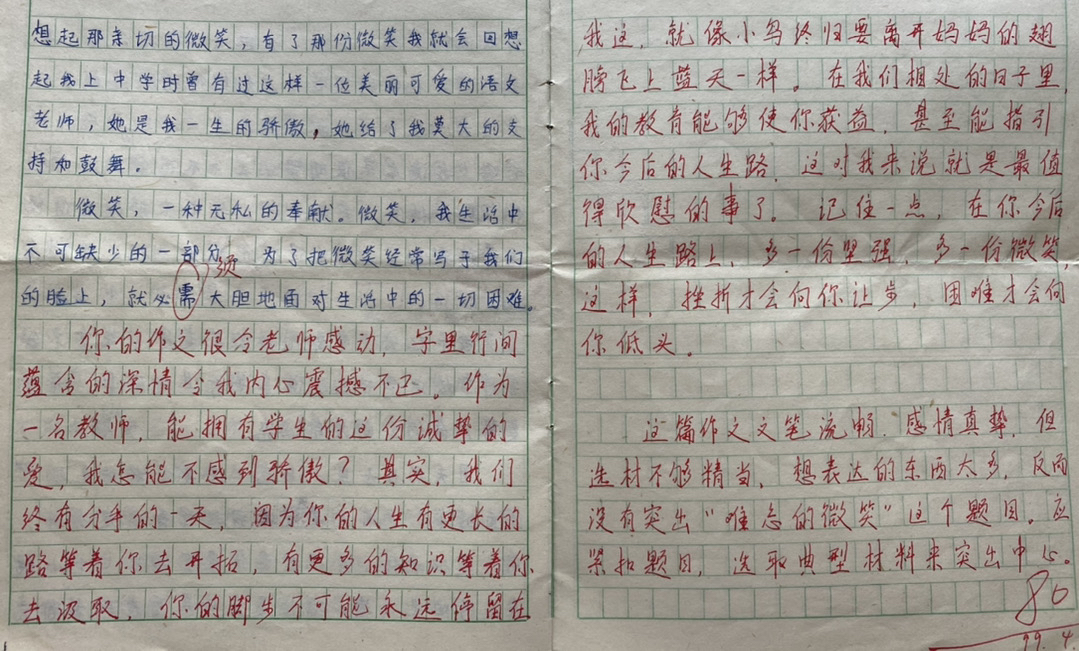 想起那亲切的微笑，有了那份微笑我就会回想
起我上中学时曾有过这样一位美丽可爱的语文
老师，她是我一生的骄傲。她给了我莫大的支
持和鼓舞。
微笑，一种无私的奉献。微笑，我生活中
不可缺少的一部分。为了把微笑经常写于我们
须
的脸上，就必需大胆地面对生活中的一切困难。
你的作文很令老师感动，字里行间
蕴含的深情令我内心震撼不已。作为
一名教师，能拥有学生的这份诚挚的
爱，我怎能不感到骄傲？其实，我们
终有分手的一天，因为你的人生有更长的
路等着你去开拓，有更多的知识等着你
去汲取，你的脚步不可能永远停留在
我这，就像小鸟终归要离开妈妈的翅
膀飞上蓝天一样。在我们相处的日子里，
我的教育能够使你获益，甚至能指引
你今后的人生路，这对我来说就是最值
得欣慰的事了。记住一点，在你今后
的人生路上，多一份坚强，多一份微笑，
这样，挫折才会向你让步，困难才会向
你低头。
这篇作文文笔流畅，感情真挚，但
选材不够精当，想表达的东西太多，反而
没有突出“难忘的微笑”这个题目。应
紧扣题目，选取典型材料来突出中心。
80
99.4.